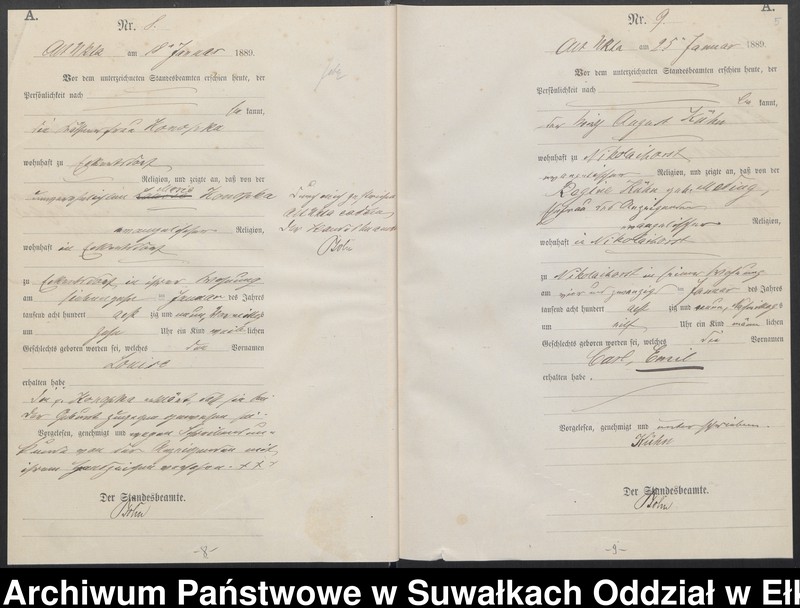 A.
Nr. 8.
Alt Ukta am Januar 1889.
Vor dem unterzeichneten Standesbeamten erschien heute, der
Persönlichkeit nach
kannt,
die Konopka
wohnhaft zu Eckertsdorf
Religion, und zeigte an, daß von der
unverehelichten Konopka
evangelischer Religion,
wohnhaft in Eckertsdorf
zu Eckertsdorf in ihrer Wohnung
am siebenzehn ten Januar des Jahres
tausend acht hundert acht zig und neun, Vormittags
um zehn Uhr ein Kind weib lichen
Geschlechts geboren worden sei, welches den Vornamen
Louise
erhalten habe
Die p. Konopka erklärt, daß sie bei
der Geburt zugegen gewesen sei.
Vorgelesen, genehmigt und wegen Schreibens un-
kunde von der Anzeigenden mit
ihrem Handzeichen versehen. + + +
Der Standesbeamte.
Bohn
-8-
Der Standesbeamte
Bohn
A.
Nr. 9.
Alt Ukta am 25 ten Januar 1889.
Vor dem unterzeichneten Standesbeamten erschien heute, der
Persönlichkeit nach
be kannt,
der August Kühn
wohnhaft zu Nikolaihorst
evangelischer Religion, und zeigte an, daß von der
Kühn geb.
Ehefrau des Anzeigenden
evangelischer Religion,
wohnhaft in Nikolaihorst
zu Nikolaihorst in seiner Wohnung
am vier und zwanzig ten Januar des Jahres
tausend acht hundert acht zig und neun,
um elf Uhr ein Kind männ lichen
Geschlechts geboren worden sei, welches die Vornamen
Carl, Emil
erhalten habe.
Vorgelesen, genehmigt und unterschrieben.
Kühn
Der Standesbeamte.
Bohn
-9-
Archiwum Państwowe w Suwałkach Oddział w Ełk